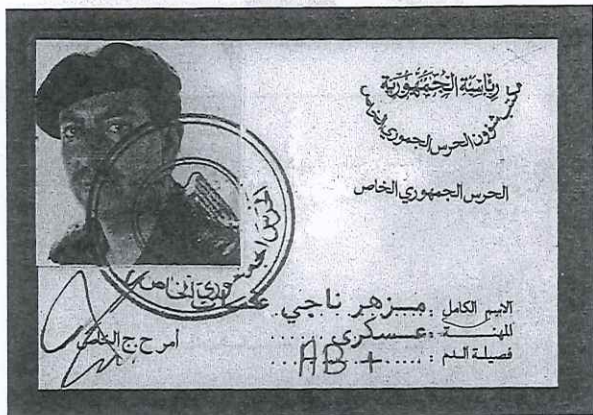 رئاسة الجمهورية
مكتب شؤون الحرس الجمهوري الخاص
الحرس الجمهوري الخاص
الحرس الجمهوري الخاص
الاسم الكامل : مزهر ناجي
المهنة : عسكري
فصيلة الدم : AB +
أمر ح.ج الخاص